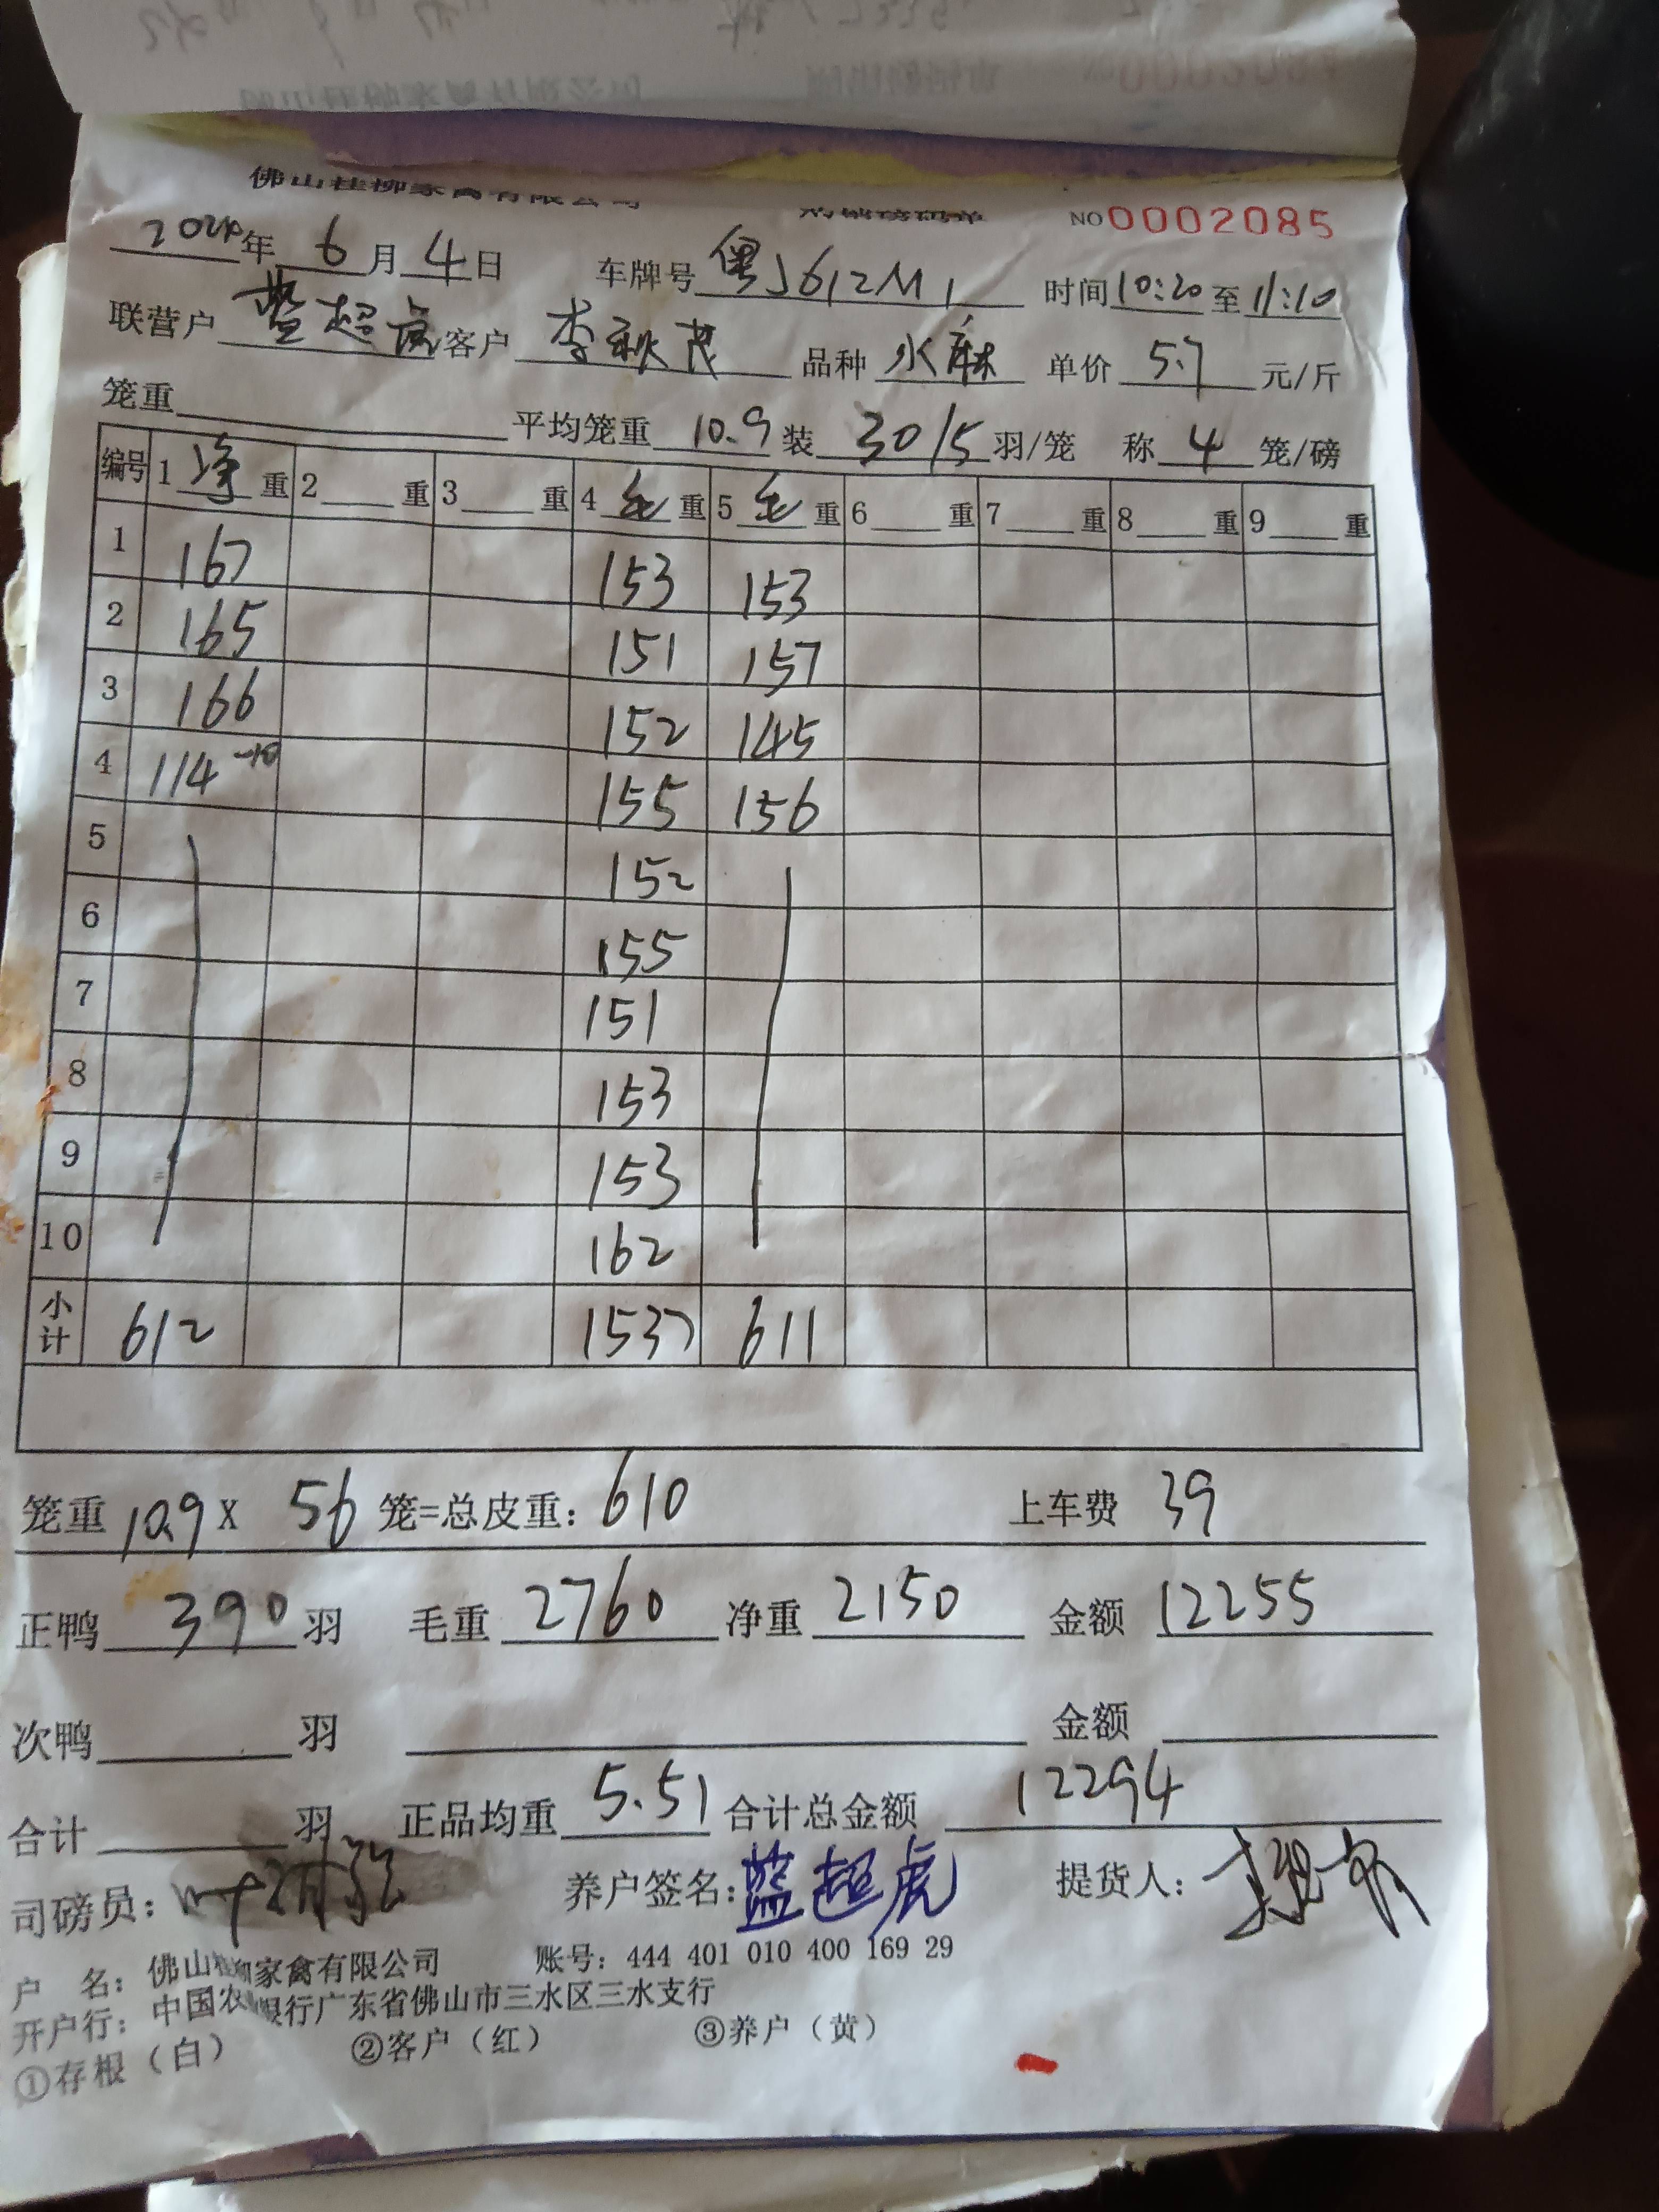 佛山桂柳家禽有限公司 购销磅码单 NO 0002085
2024年 6 月 4 日 车牌号 粤J612M1 时间 10:20 至 11:10
联营户 蓝超虎 客户 李秋茂 品种 水麻 单价 5.7 元/斤
笼重 平均笼重 10.9 装 30/5 羽/笼 称 4 笼/磅
编号 1 净 重 2 重 3 重 4 毛 重 5 毛 重 6 重 7 重 8 重 9 重
1 167 153 153
2 165 151 157
3 166 152 145
4 114 -10 155 156
5 152
6 155
7 151
8 153
9 153
10 162
小计 612 1537 611
笼重 10.9 X 56 笼=总皮重: 610 上车费 39
正鸭 390 羽 毛重 2760 净重 2150 金额 12255
次鸭 羽 金额
合计 羽 正品均重 5.51 合计总金额 12294
司磅员: 养户签名: 蓝超虎 提货人:
户 名: 佛山桂柳家禽有限公司 账号: 444 401 010 400 169 29
开户行: 中国农业银行广东省佛山市三水区三水支行
①存根（白） ②客户（红） ③养户（黄）